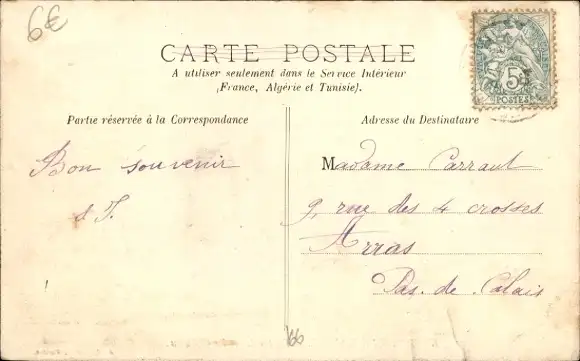 6€
CARTE POSTALE
A utiliser seulement dans le Service Intérieur
(France, Algérie et Tunisie).
Partie réservée à la Correspondance
Adresse du Destinataire
Bon souvenir
Madame Carraut
9, rue des 4 crosses
Arras
Pas. de. Calais
5c
POSTES